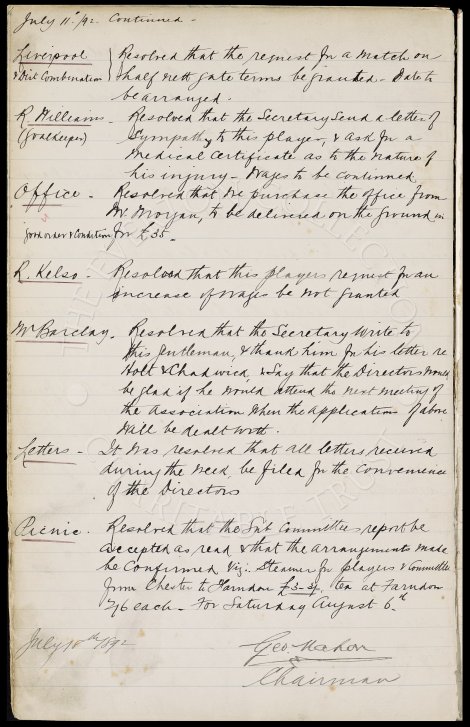 July 11th /92 Continued -
Liverpool Resolved that the request for a match on
& Dist Combination half nett gate terms be granted - Date to
be arranged.
R. Williams - Resolved that the Secretary send a letter of
(Goalkeeper) Sympathy to this player, & ask for a
Medical Certificate as to the nature of
his injury - Wages to be continued
Office - Resolved that we purchase the office from
Mr Morgan, to be delivered on the ground in
good order & Condition for £35 -
R. Kelso - Resolved that this players request for an
increase of wages be not granted
Mr Barclay - Resolved that the Secretary write to
this gentleman, & thank him for his letter re
Holt & Chadwick & say that the Directors would
be glad if he would attend the next meeting of
the Association when the application of above
will be dealt with.
Letters - It was resolved that all letters received
during the week, be filed for the convenience
of the Directors
Picnic. Resolved that the Sub Committees report be
accepted as read & that the arrangements made
be Confirmed Viz. Steamer for players & Committee
from Chester to Farndon £3-3/-, tea at Farndon
2/6 each - For Saturday August 6th
July 18th 1892 Geo. Mahon
Chairman